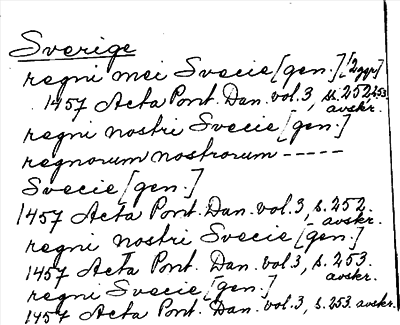 Sverige
regni mei Svecie [gen.] [2ggr]
1457 Acta Pont. Dan. vol. 3, s. 252, 253.
avskr.
regni nostri Svecie [gen.]
regnorum nostrorum -----
Svecie [gen.]
1457 Acta Pont. Dan. vol. 3, s. 252.
avskr.
regni nostri Svecie [gen.]
1457 Acta Pont. Dan. vol. 3, s. 253.
avskr.
regni Svecie [gen.]
1457 Acta Pont. Dan. vol. 3, s. 253. avskr.